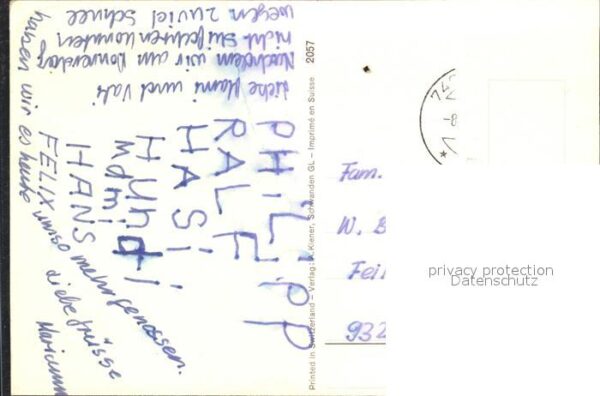 Liebe Mami und Vati
Nachdem wir am Donnerstag
nicht Skifahren konnten
wegen zuviel Schnee
haben wir es heute
umso mehr genossen.
Liebe Grüsse
PHILIPP
RALF
HASI
HUND
Mami
HANS
FELIX
2057
Printed in Switzerland – Verlag: R. Kiener, Schwanden GL – Imprimé en Suisse
Fam.
W. B
Fei
932
privacy protection
Datenschutz